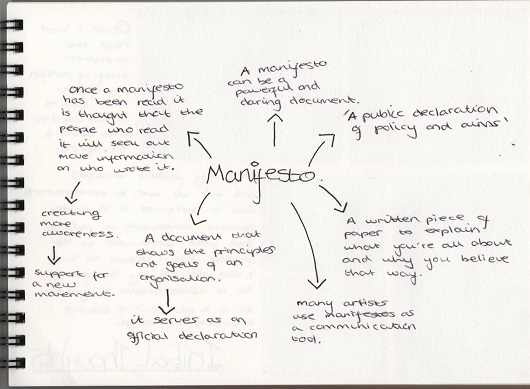 once a manifesto
has been read it
is thought that the
people who read
it will seek out
more information
on who wrote it.
creating
more
awareness.
support for
a new
movement.
A manifesto
can be a
powerful and
daring document.
'A public declaration
of policy and aims'
Manifesto.
A document that
shows the principles
and goals of an
organisation.
it serves as an
official declaration
many artists
use manifestos as
a communication
tool.
A written piece of
paper to explain
what you're all about
and why you believe
that way.
Initial Thoughts